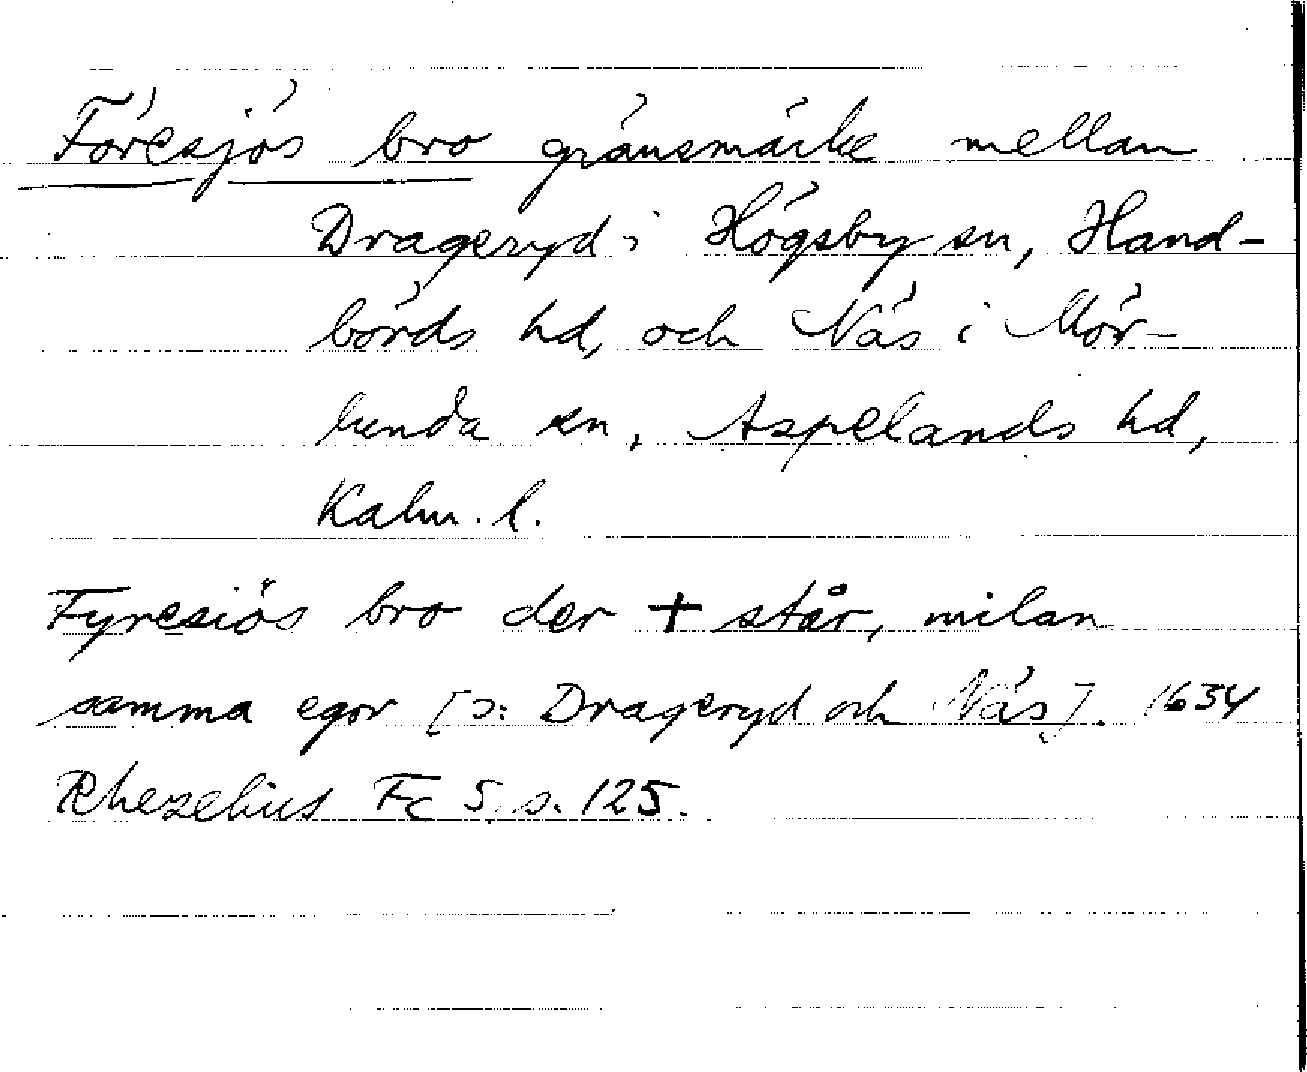 Föresjös bro gränsmärke mellan
Drageryd i Högsby sn, Hand-
börds hd, och Näs i Mör-
lunda sn, Aspelands hd,
Kalm. l.
Fyresiös bro der + står, milan
samma egor [ɔ: Drageryd och Näs]. 1634
Rhezelius Fc 5, s. 125.